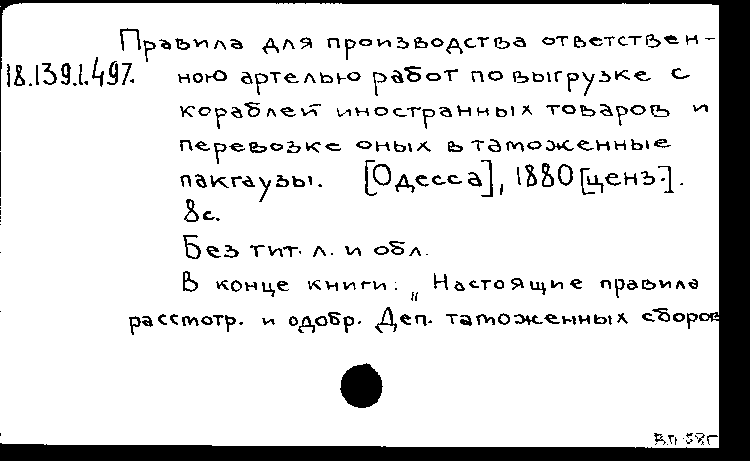 Правила для производства ответствен-
18.139.1.497. ною артелью работ по выгрузке с
кораблей иностранных товаров и
перевозке оных в таможенные
пакгаузы. [Одесса], 1880 [ценз.].
8с.
Без тит. л. и обл.
В конце книги: „Настоящие правила
рассмотр. и одобр. Деп. таможенных сборов